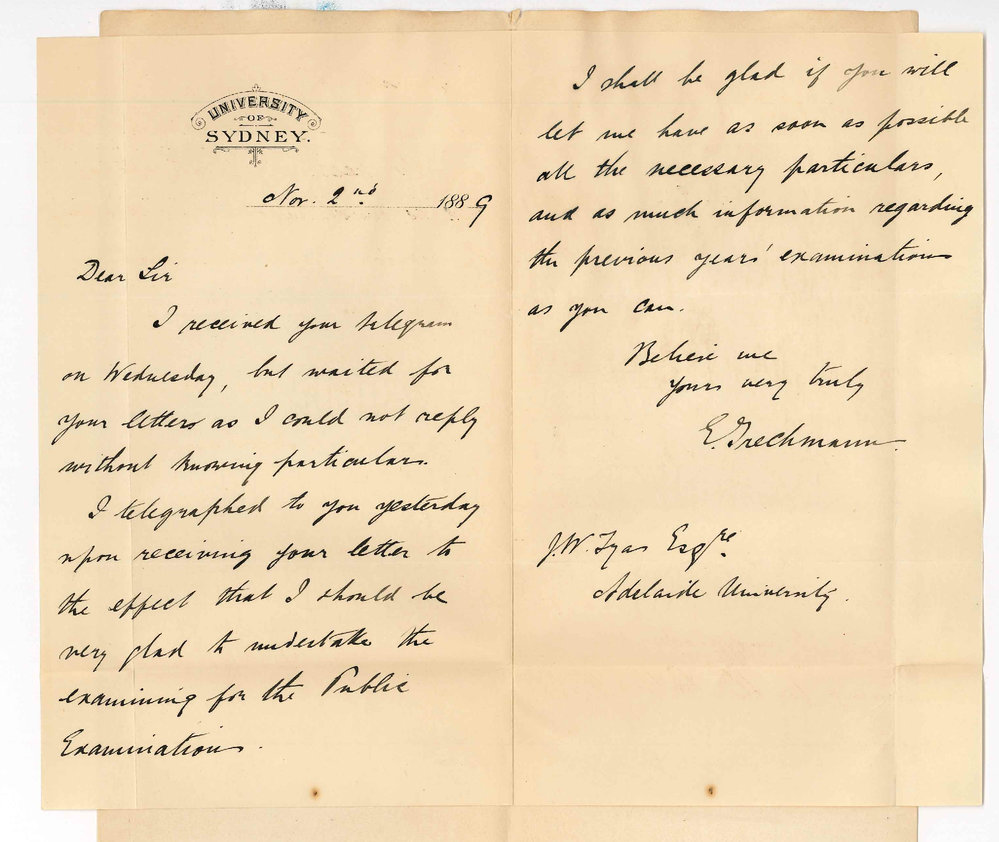 UNIVERSITY
OF
SYDNEY.
Nov. 2nd 1889
Dear Sir
I received your telegram
on Wednesday, but waited for
your letters as I could not reply
without knowing particulars.
I telegraphed to you yesterday
upon receiving your letter to
the effect that I should be
very glad to undertake the
examining for the Public
Examinations.
I shall be glad if you will
let me have as soon as possible
all the necessary particulars,
and as much information regarding
the previous years' examinations
as you can.
Believe me
yours very truly
E. Trechmann.
J.W. Tyas Esqre.
Adelaide University.